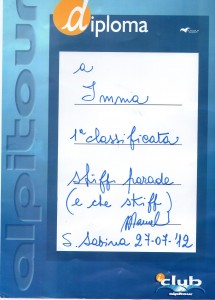 diploma
a
Imma
1a classificata
stiff parade
(e che stiff)
Manel
S. Sabina 27-07-'12
alpitour
club
alpitour